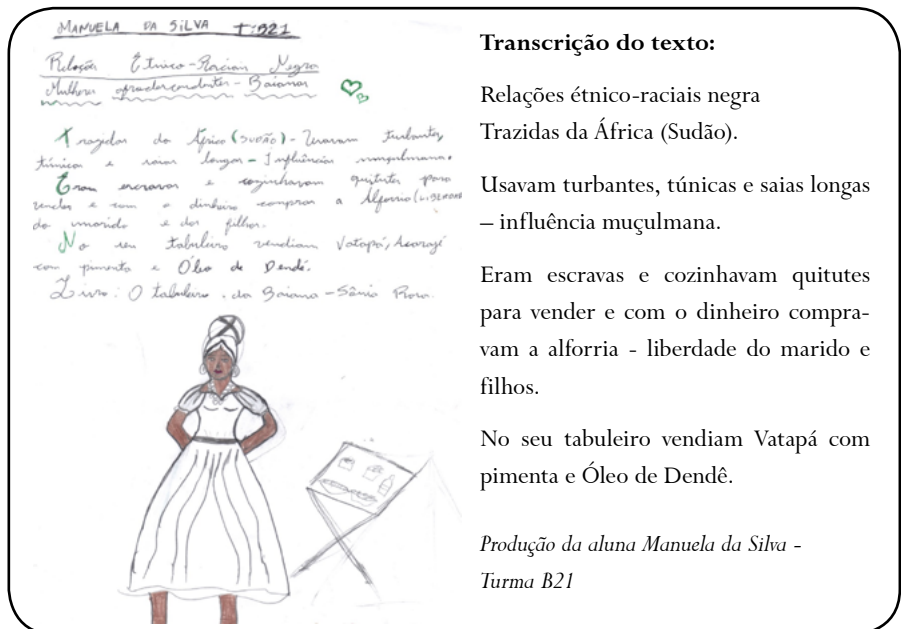 MANUELA DA SILVA T:B21
Relação Étnico-Raciais Negra
Mulheres afrodescendentes - Baianas
Trazidas da África (SUDÃO) - Usavam turbantes,
túnicas e saias longas - Influência mussulmana.
Eram escravas e cozinhavam quitutes para
vender e com o dinheiro comprar a Alforria
do marido e dos filhos.
No seu tabuleiro vendiam Vatapá, Acarajé
com pimenta e Óleo de Dendê.
Livro: O tabuleiro da Baiana - Sônia Rosa.
Transcrição do texto:
Relações étnico-raciais negra
Trazidas da África (Sudão).
Usavam turbantes, túnicas e saias longas
– influência muçulmana.
Eram escravas e cozinhavam quitutes
para vender e com o dinheiro compra-
vam a alforria - liberdade do marido e
filhos.
No seu tabuleiro vendiam Vatapá com
pimenta e Óleo de Dendê.
Produção da aluna Manuela da Silva -
Turma B21